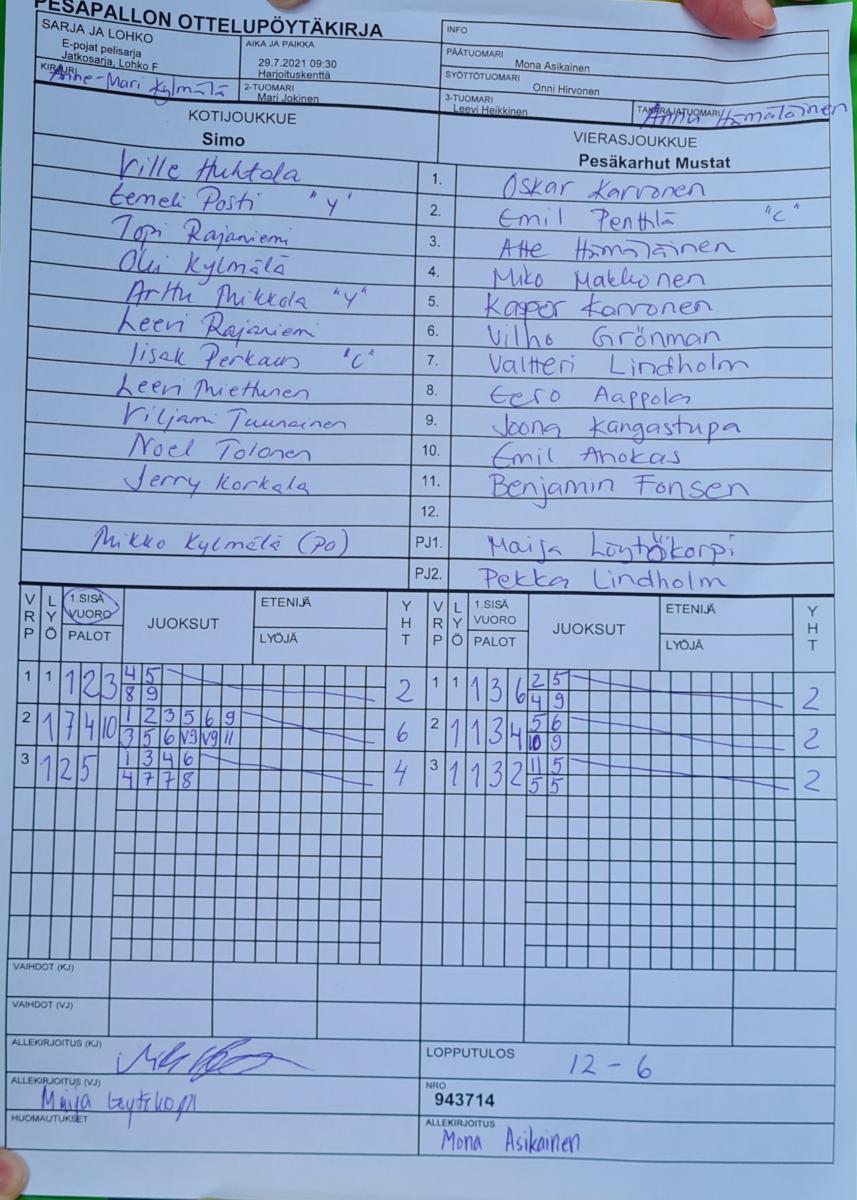 PESÄPALLON OTTELUPÖYTÄKIRJA
SARJA JA LOHKO
E-pojat pelisarja
Jatkosarja, Lohko F
AIKA JA PAIKKA
29.7.2021 09:30
Harjoituskenttä
INFO
PÄÄTUOMARI
Mona Asikainen
SYÖTTÖTUOMARI
Onni Hirvonen
KIRJURI
Anne-Mari Kylmälä
2-TUOMARI
Mari Jokinen
3-TUOMARI
Leevi Heikkinen
TAKARAJATUOMARI
Hämäläinen
KOTIJOUKKUE
Simo
VIERASJOUKKUE
Pesäkarhut Mustat
Ville Huhtala 1. Oskar Karvonen
Eemeli Posti "y" 2. Emil Penttlä "C"
Topi Rajaniemi 3. Atte Hämäläinen
Olli Kylmälä 4. Miko Makkonen
Arttu Mikkola "y" 5. Kasper Karvonen
Leevi Rajaniemi 6. Vilho Grönman
Iisak Perkaus "C" 7. Valtteri Lindholm
Leevi Miettunen 8. Eero Aappola
Viljami Tuunainen 9. Joona Kangastupa
Noel Tolonen 10. Emil Ahokas
Jerry Korkala 11. Benjamin Fonsen
12.
Mikko Kylmälä (PO) PJ1. Maija Löytökorpi
PJ2. Pekka Lindholm
VRP LYÖ 1.SISÄ VUORO PALOT JUOKSUT ETENIJÄ LYÖJÄ YHT VRP LYÖ 1.SISÄ VUORO PALOT JUOKSUT ETENIJÄ LYÖJÄ YHT
1 1 1 2 3 4 5 2 1 1 1 3 6 2 5 2
8 9 4 9
2 1 7 4 10 1 2 3 5 6 9 6 2 1 1 3 4 5 6 2
3 5 6 V9 V9 11 10 9
3 1 2 5 1 3 4 6 4 3 1 1 3 2 11 5 2
4 7 7 8 5 5
VAIHDOT (KJ)
VAIHDOT (VJ)
ALLEKIRJOITUS (KJ)
LOPPUTULOS 12 - 6
ALLEKIRJOITUS (VJ)
Maija Löytökorpi
NRO
943714
HUOMAUTUKSET
ALLEKIRJOITUS
Mona Asikainen